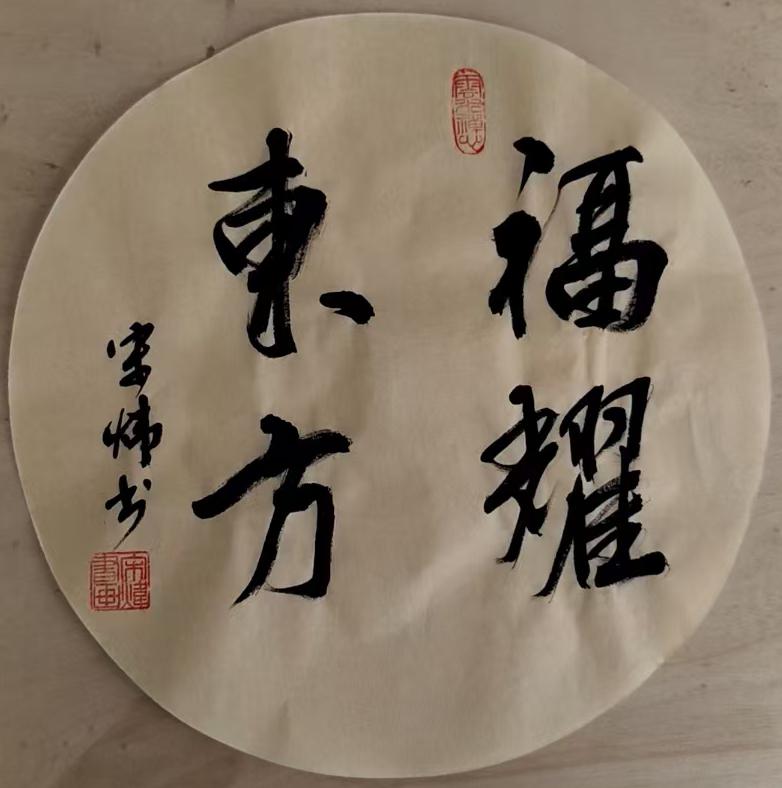 福耀
東方
宋炜书